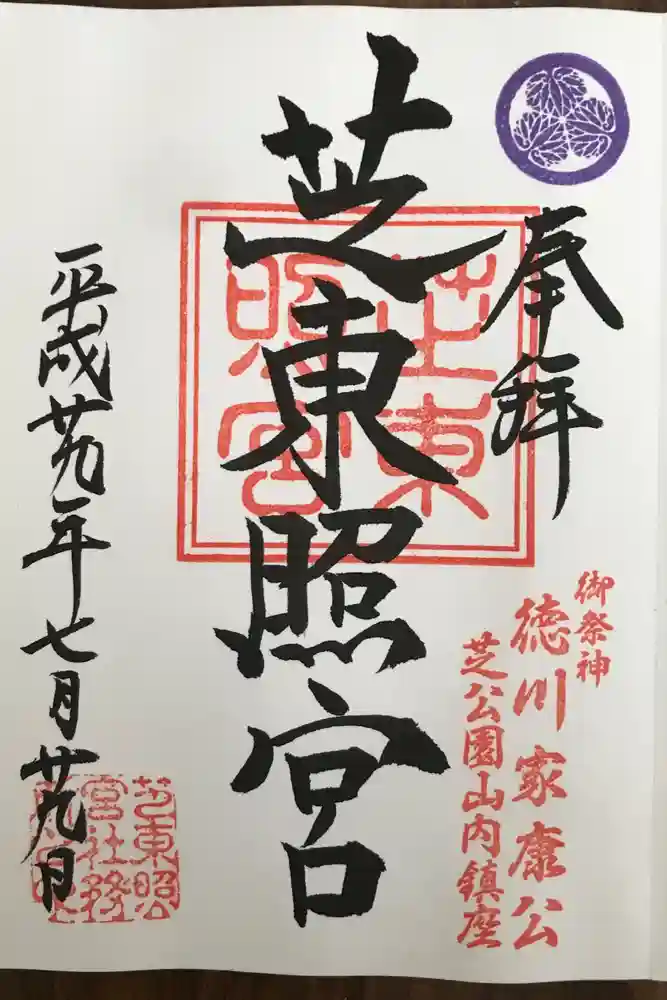 奉拝
御祭神
徳川家康公
芝公園山内鎮座
芝東照宮
芝東照宮
平成廿九年七月廿九日
芝東照
宮社務